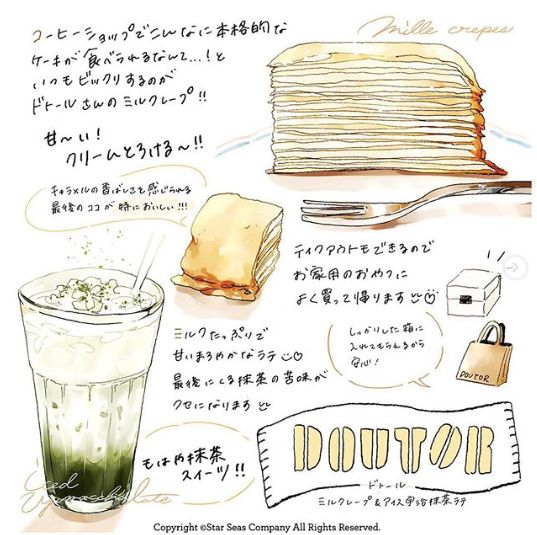 コーヒーショップでこんなに本格的な
ケーキが食べられるなんて...!と
いつもビックリするのが
ドトールさんのミルクレープ!!
甘〜い!
クリームとろける〜!!
Mille crepes
キャラメルの香ばしさを感じられる
最後のココが特においしい!!!
テイクアウトもできるので
お家用のおやつに
よく買って帰ります
しっかりした箱に
入れてもらえるから
安心!
DOUTOR
ミルクたっぷりで
甘いまろやかなラテ
最後にくる抹茶の苦味が
クセになります
もはや抹茶
スイーツ!!
Iced
DOUTOR
ドトール
ミルクレープ&アイス宇治抹茶ラテ
Copyright ©Star Seas Company All Rights Reserved.